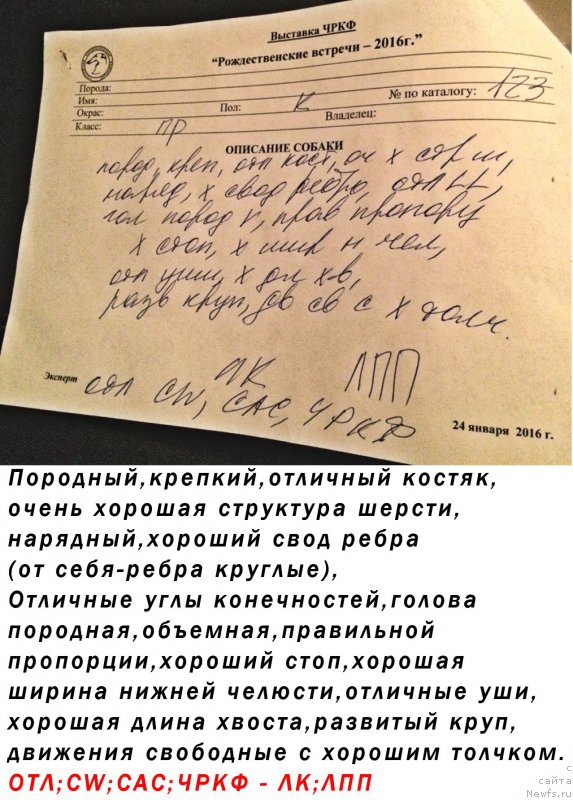 Выставка ЧРКФ
"Рождественские встречи – 2016г."
Порода:
№ по каталогу: 123
Имя:
Окрас:
Пол: К
Владелец:
Класс: ПР
ОПИСАНИЕ СОБАКИ
пород, креп, отл кост, оч х стр ш,
наряд, х свод ребра, отл
гол пород, прав пропорц
х стоп, х шир н чел,
отл уши, х дл хв,
разв круп, дв св с х толч.
ЛК ЛПП
Эксперт отл CW, CAC, ЧРКФ
24 января 2016 г.
Породный,крепкий,отличный костяк,
очень хорошая структура шерсти,
нарядный,хороший свод ребра
(от себя-ребра круглые),
Отличные углы конечностей,голова
породная,объемная,правильной
пропорции,хороший стоп,хорошая
ширина нижней челюсти,отличные уши,
хорошая длина хвоста,развитый круп,
движения свободные с хорошим толчком.
ОТЛ;CW;CAC;ЧРКФ - ЛК;ЛПП
с
сайта
Newfs.ru